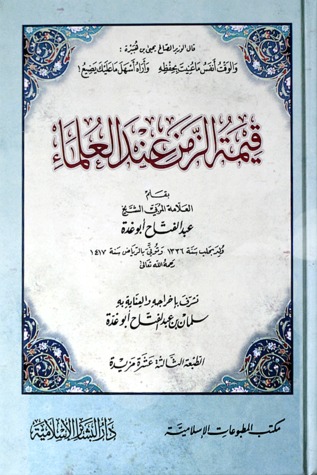 قال الوزير الصالح يحيى بن هُبَيْرة :
وَالوَقْتُ أَنْفَسُ مَا عُنِيتَ بِحِفْظِهِ وَأَرَاهُ أَسْهَلَ مَا عَلَيْكَ يَضِيعُ !
قيمة الزمن عند العلماء
بقلم
العلامة المربي الشيخ
عبد الفتاح أبو غدة
ولد بحلب سنة ١٣٣٦ وتوفي بالرياض سنة ١٤١٧
رحمه الله تعالى
تشرف بإخراجه والعناية به
سلمان بن عبد الفتاح أبو غدة
الطبعة الثالثة عشرة مزيدة
مكتب المطبوعات الإسلامية
دار البشائر الإسلامية